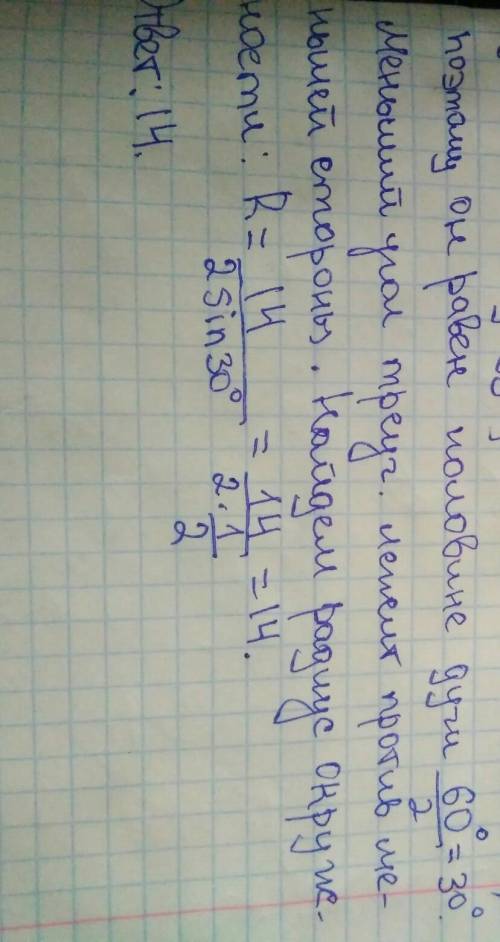 поэтому он равен половине дуги 60°/2 = 30°.
Меньший угол треуг. лежит против ме-
ньшей стороны. Найдем радиус окруж-
ности: R = 14/2sin30° = 14/2·1/2 = 14.
Ответ: 14.